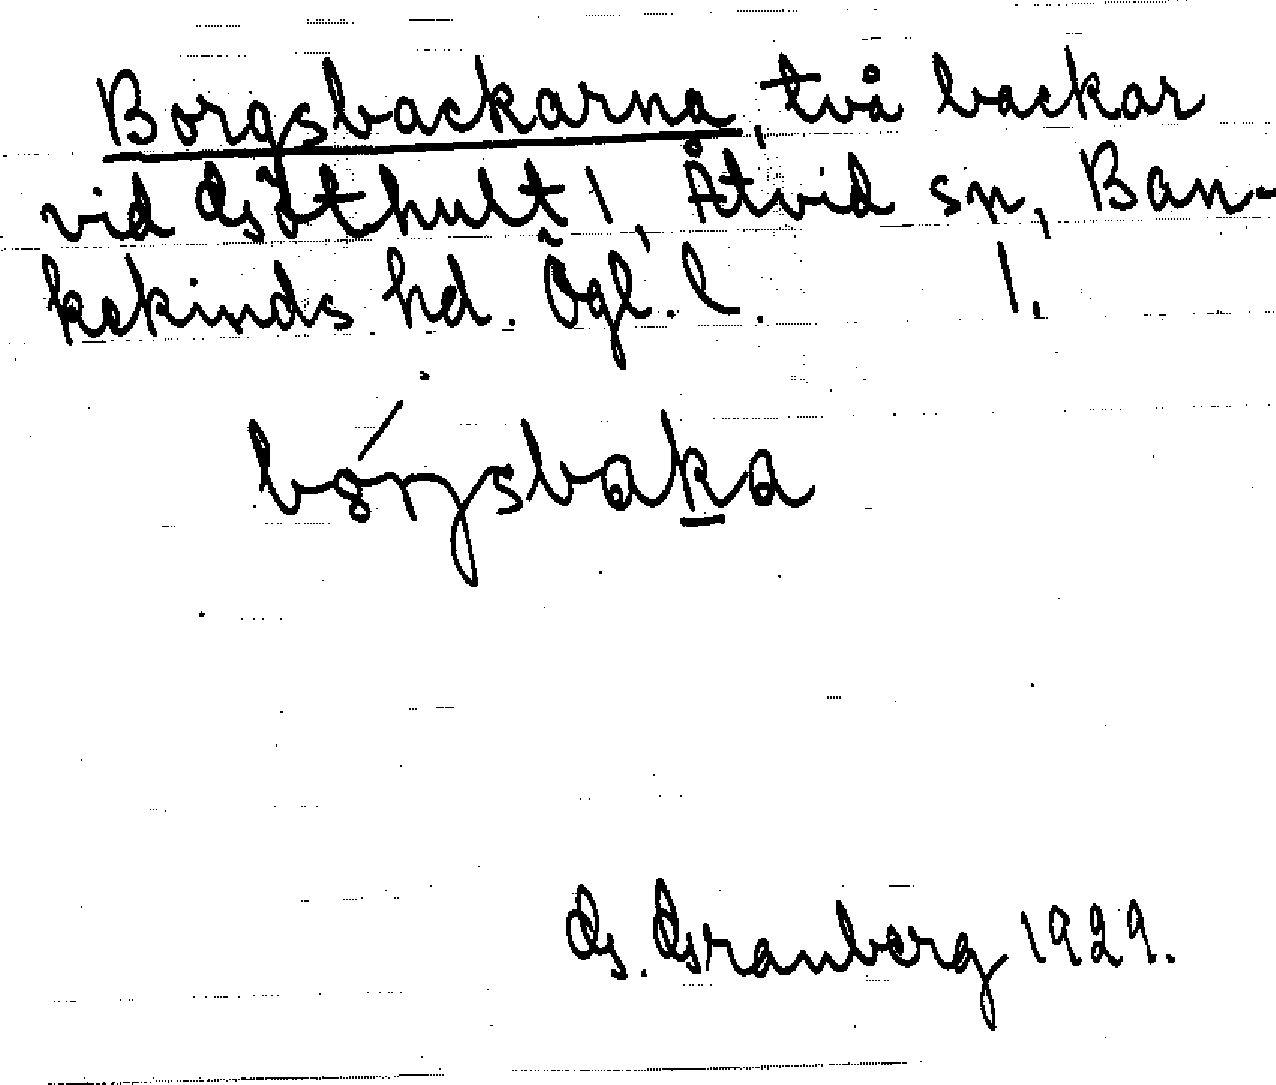 Borgsbackarna, två backar
vid Göthult 1, Åtvid sn, Ban-
kekinds hd. Ögl. l. 1.
bórgsbaka
G. Granberg 1929.